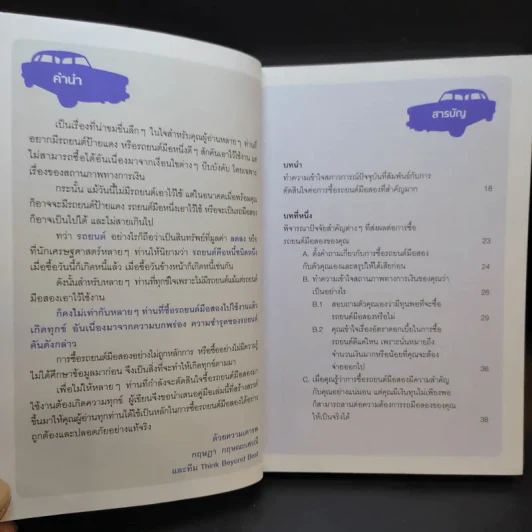 คำนำ
เป็นเรื่องที่น่าขมขื่นลึกๆ ในใจสำหรับคุณผู้อ่านหลายๆ ท่านที่
อยากมีรถยนต์ป้ายแดง หรือรถยนต์มือหนึ่งดีๆ สักคันเอาไว้ใช้งาน แต่
ไม่สามารถซื้อได้อันเนื่องมาจากเงื่อนไขต่างๆ บีบบังคับ โดยเฉพาะ
เรื่องของสถานภาพทางการเงิน
กระนั้น แม้วันนี้ไม่มีรถยนต์เอาไว้ใช้ แต่ในอนาคตเมื่อพร้อมคุณ
ก็อาจจะมีรถยนต์ป้ายแดง หรือรถยนต์มือหนึ่งเอาไว้ใช้ หรือจะเป็นรถมือสอง
ก็อาจเป็นไปได้ และไม่สายเกินไป
ทว่า รถยนต์ อย่างไรก็ถือว่าเป็นสินทรัพย์ที่มูลค่า ลดลง หรือ
ที่นักเศรษฐศาสตร์หลายๆ ท่านให้นิยามว่า รถยนต์คือหนี้ชนิดหนึ่ง
เมื่อซื้อวันนี้ก็เกิดหนี้แล้ว เมื่อซื้อวันข้างหน้าก็เกิดหนี้เช่นกัน
ดังนั้นสำหรับหลายๆ ท่านที่ทุกข์ใจเพราะไม่มีรถยนต์แม้แต่รถยนต์
มือสองเอาไว้ใช้งาน
ก็คงไม่เท่ากับหลายๆ ท่านที่ซื้อรถยนต์มือสองไปใช้งานแล้ว
เกิดทุกข์ อันเนื่องมาจากความบกพร่อง ความชำรุดของรถยนต์
คันดังกล่าว
การซื้อรถยนต์มือสองอย่างไม่ถูกหลักการ หรือซื้ออย่างไม่มีความรู้
ไม่ได้ศึกษาข้อมูลมาก่อน จึงเป็นสิ่งที่จะทำให้เกิดทุกข์ตามมา
เพื่อไม่ให้หลายๆ ท่านที่กำลังจะตัดสินใจซื้อรถยนต์มือสองมา
ใช้งานต้องเกิดความทุกข์ ผู้เขียนจึงขอนำเสนอคู่มือเล่มนี้ที่สร้างสรรค์
ขึ้นมาให้คุณผู้อ่านทุกท่านได้ใช้เป็นหลักในการซื้อรถยนต์มือสองได้อย่าง
ถูกต้องและปลอดภัยอย่างแท้จริง
ด้วยความเคารพ
กฤษฎา กฤษณะเศรณี
และทีม Think Beyond Best
สารบัญ
บทนำ
ทำความเข้าใจสภาวการณ์ปัจจุบันที่สัมพันธ์กับการ
ตัดสินใจต่อการซื้อรถยนต์มือสองที่สำคัญมาก 18
บทที่หนึ่ง
พิจารณาปัจจัยสำคัญต่างๆ ที่ส่งผลต่อการซื้อ
รถยนต์มือสองของคุณ 23
A. ตั้งคำถามเกี่ยวกับการซื้อรถยนต์มือสอง
กับตัวคุณเองและสรุปให้ได้เสียก่อน 24
B. ทำความเข้าใจสถานภาพทางการเงินของคุณว่า
เป็นอย่างไร 26
B.1 สอบถามตัวคุณเองว่ามีทุนพอที่จะซื้อ
รถยนต์มือสองหรือไม่ 29
B.2 คุณเข้าใจเรื่องอัตราดอกเบี้ยในการซื้อ
รถยนต์ดีแค่ไหน เพราะนั่นหมายถึง
จำนวนเงินมากหรือน้อยที่คุณจะต้อง
จ่ายออกไป 36
C. เมื่อคุณรู้ว่าการซื้อรถยนต์มือสองมีความสำคัญ
กับคุณอย่างแน่นอน แต่คุณมีเงินทุนไม่เพียงพอ
ก็สามารถสานต่อความต้องการรถมือสองของคุณ
ให้เป็นจริงได้ 38